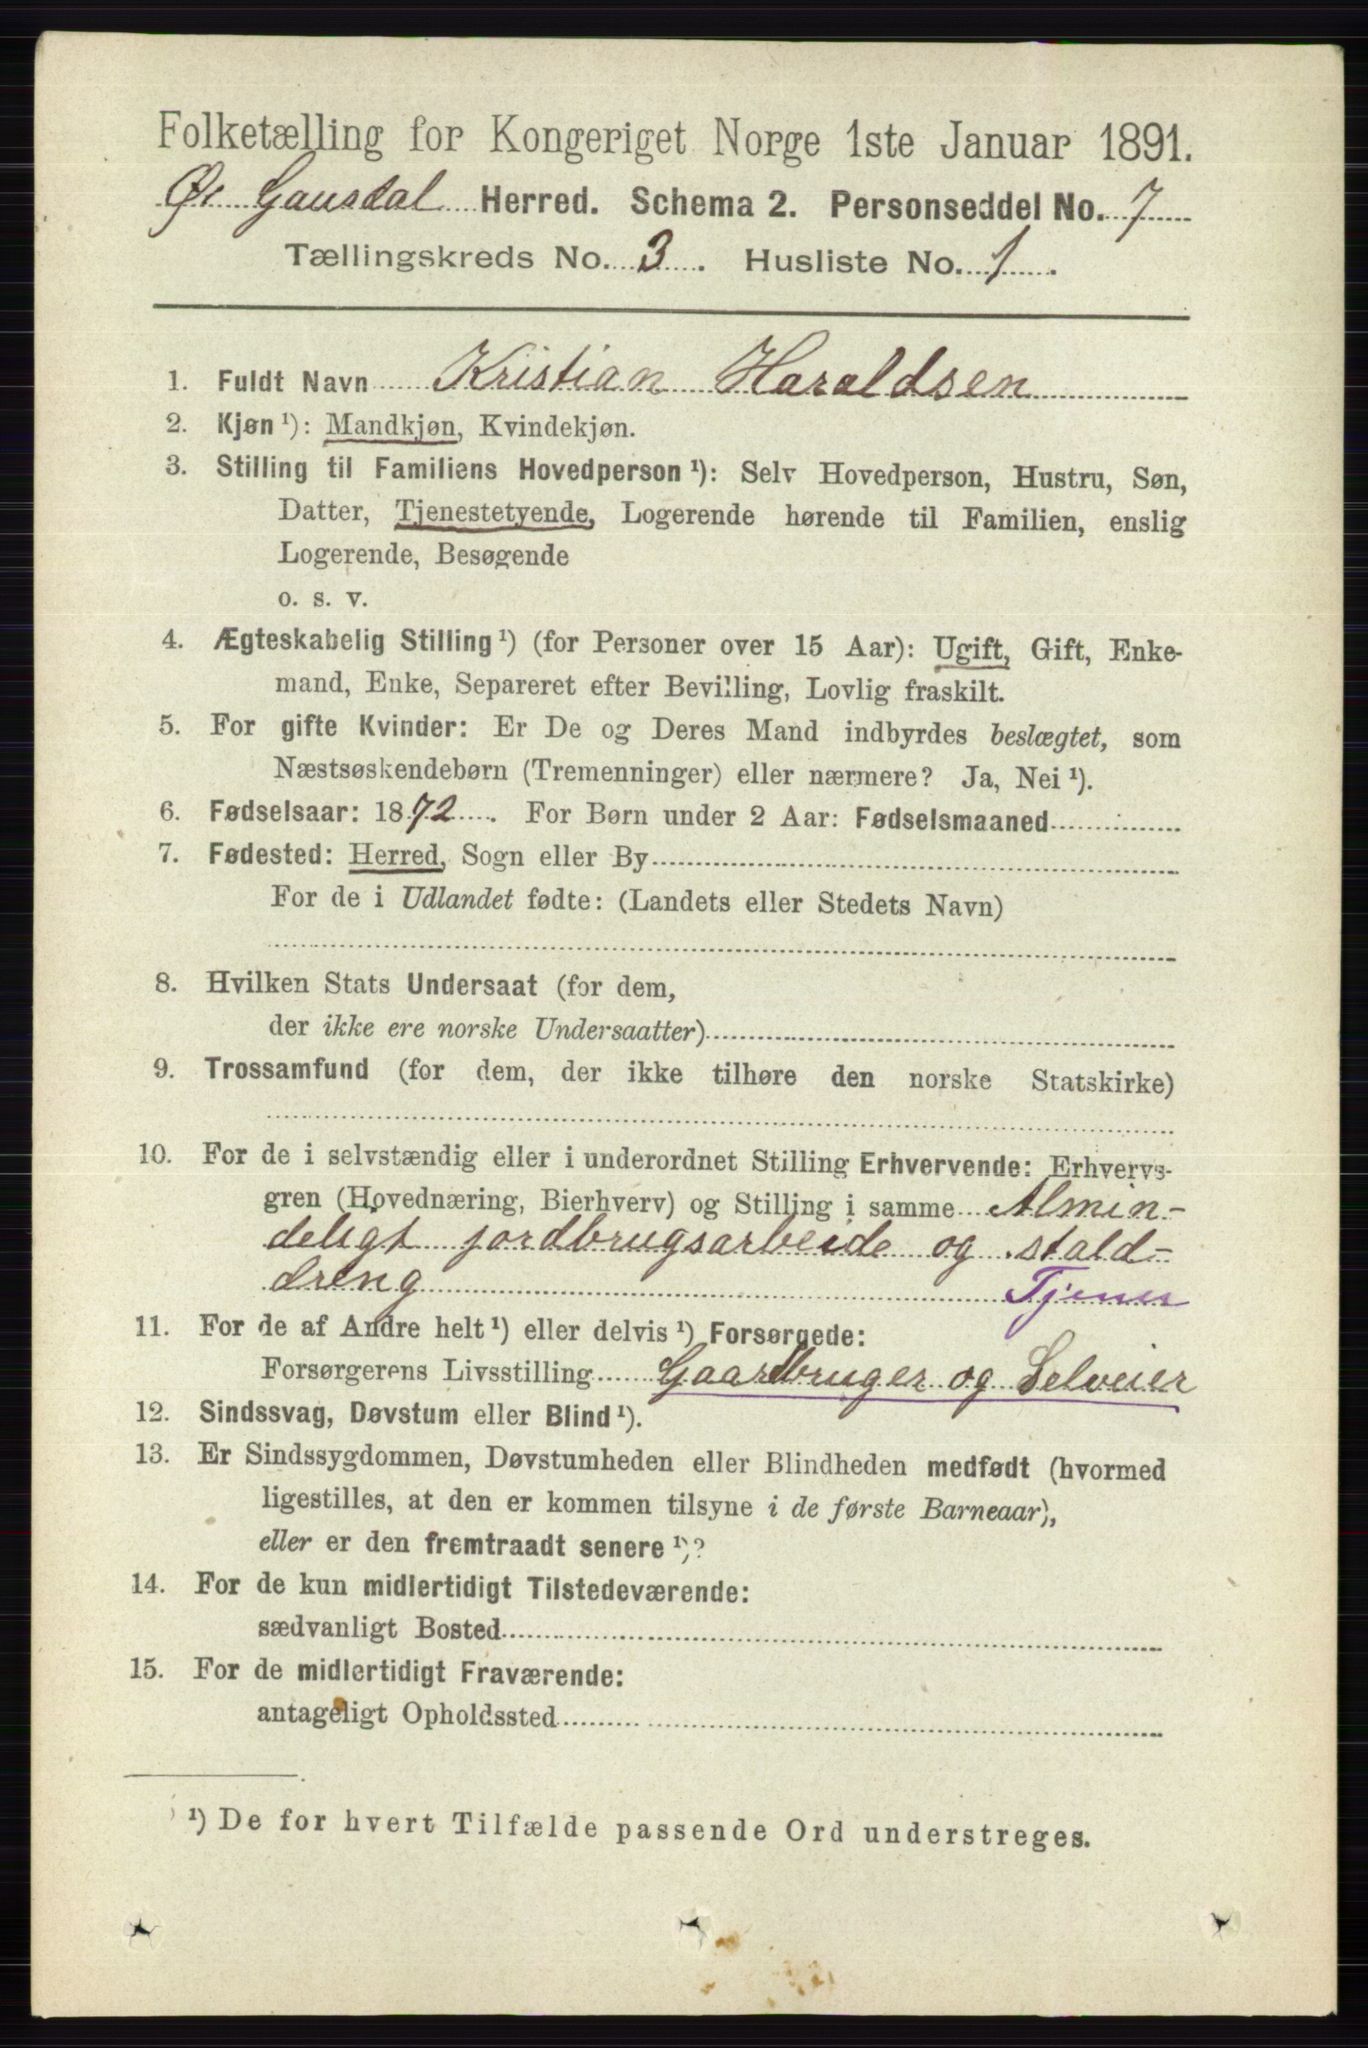 Folketælling for Kongeriget Norge 1ste Januar 1891.
Ø. Gausdal Herred. Schema 2. Personseddel No. 7
Tællingskreds No. 3. Husliste No. 1.
1. Fuldt Navn Kristian Haraldsen
2. Kjøn ¹): Mandkjøn, Kvindekjøn.
3. Stilling til Familiens Hovedperson ¹): Selv Hovedperson, Hustru, Søn,
Datter, Tjenestetyende, Logerende hørende til Familien, enslig
Logerende, Besøgende
o. s. v.
4. Ægteskabelig Stilling ¹) (for Personer over 15 Aar): Ugift, Gift, Enke-
mand, Enke, Separeret efter Bevilling, Lovlig fraskilt.
5. For gifte Kvinder: Er De og Deres Mand indbyrdes beslægtet, som
Næstsøskendebørn (Tremenninger) eller nærmere? Ja, Nei ¹).
6. Fødselsaar: 1872. For Børn under 2 Aar: Fødselsmaaned
7. Fødested: Herred, Sogn eller By
For de i Udlandet fødte: (Landets eller Stedets Navn)
8. Hvilken Stats Undersaat (for dem,
der ikke ere norske Undersaatter)
9. Trossamfund (for dem, der ikke tilhøre den norske Statskirke)
10. For de i selvstændig eller i underordnet Stilling Erhvervende: Erhvervs-
gren (Hovednæring, Bierhverv) og Stilling i samme Almin-
deligt jordbrugsarbeide og stald-
dreng Tjener
11. For de af Andre helt ¹) eller delvis ¹) Forsørgede:
Forsørgerens Livsstilling Gaardbruger og Selveier
12. Sindssvag, Døvstum eller Blind ¹).
13. Er Sindssygdommen, Døvstumheden eller Blindheden medfødt (hvormed
ligestilles, at den er kommen tilsyne i de første Barneaar),
eller er den fremtraadt senere ¹)?
14. For de kun midlertidigt Tilstedeværende:
sædvanligt Bosted
15. For de midlertidigt Fraværende:
antageligt Opholdssted
¹) De for hvert Tilfælde passende Ord understreges.